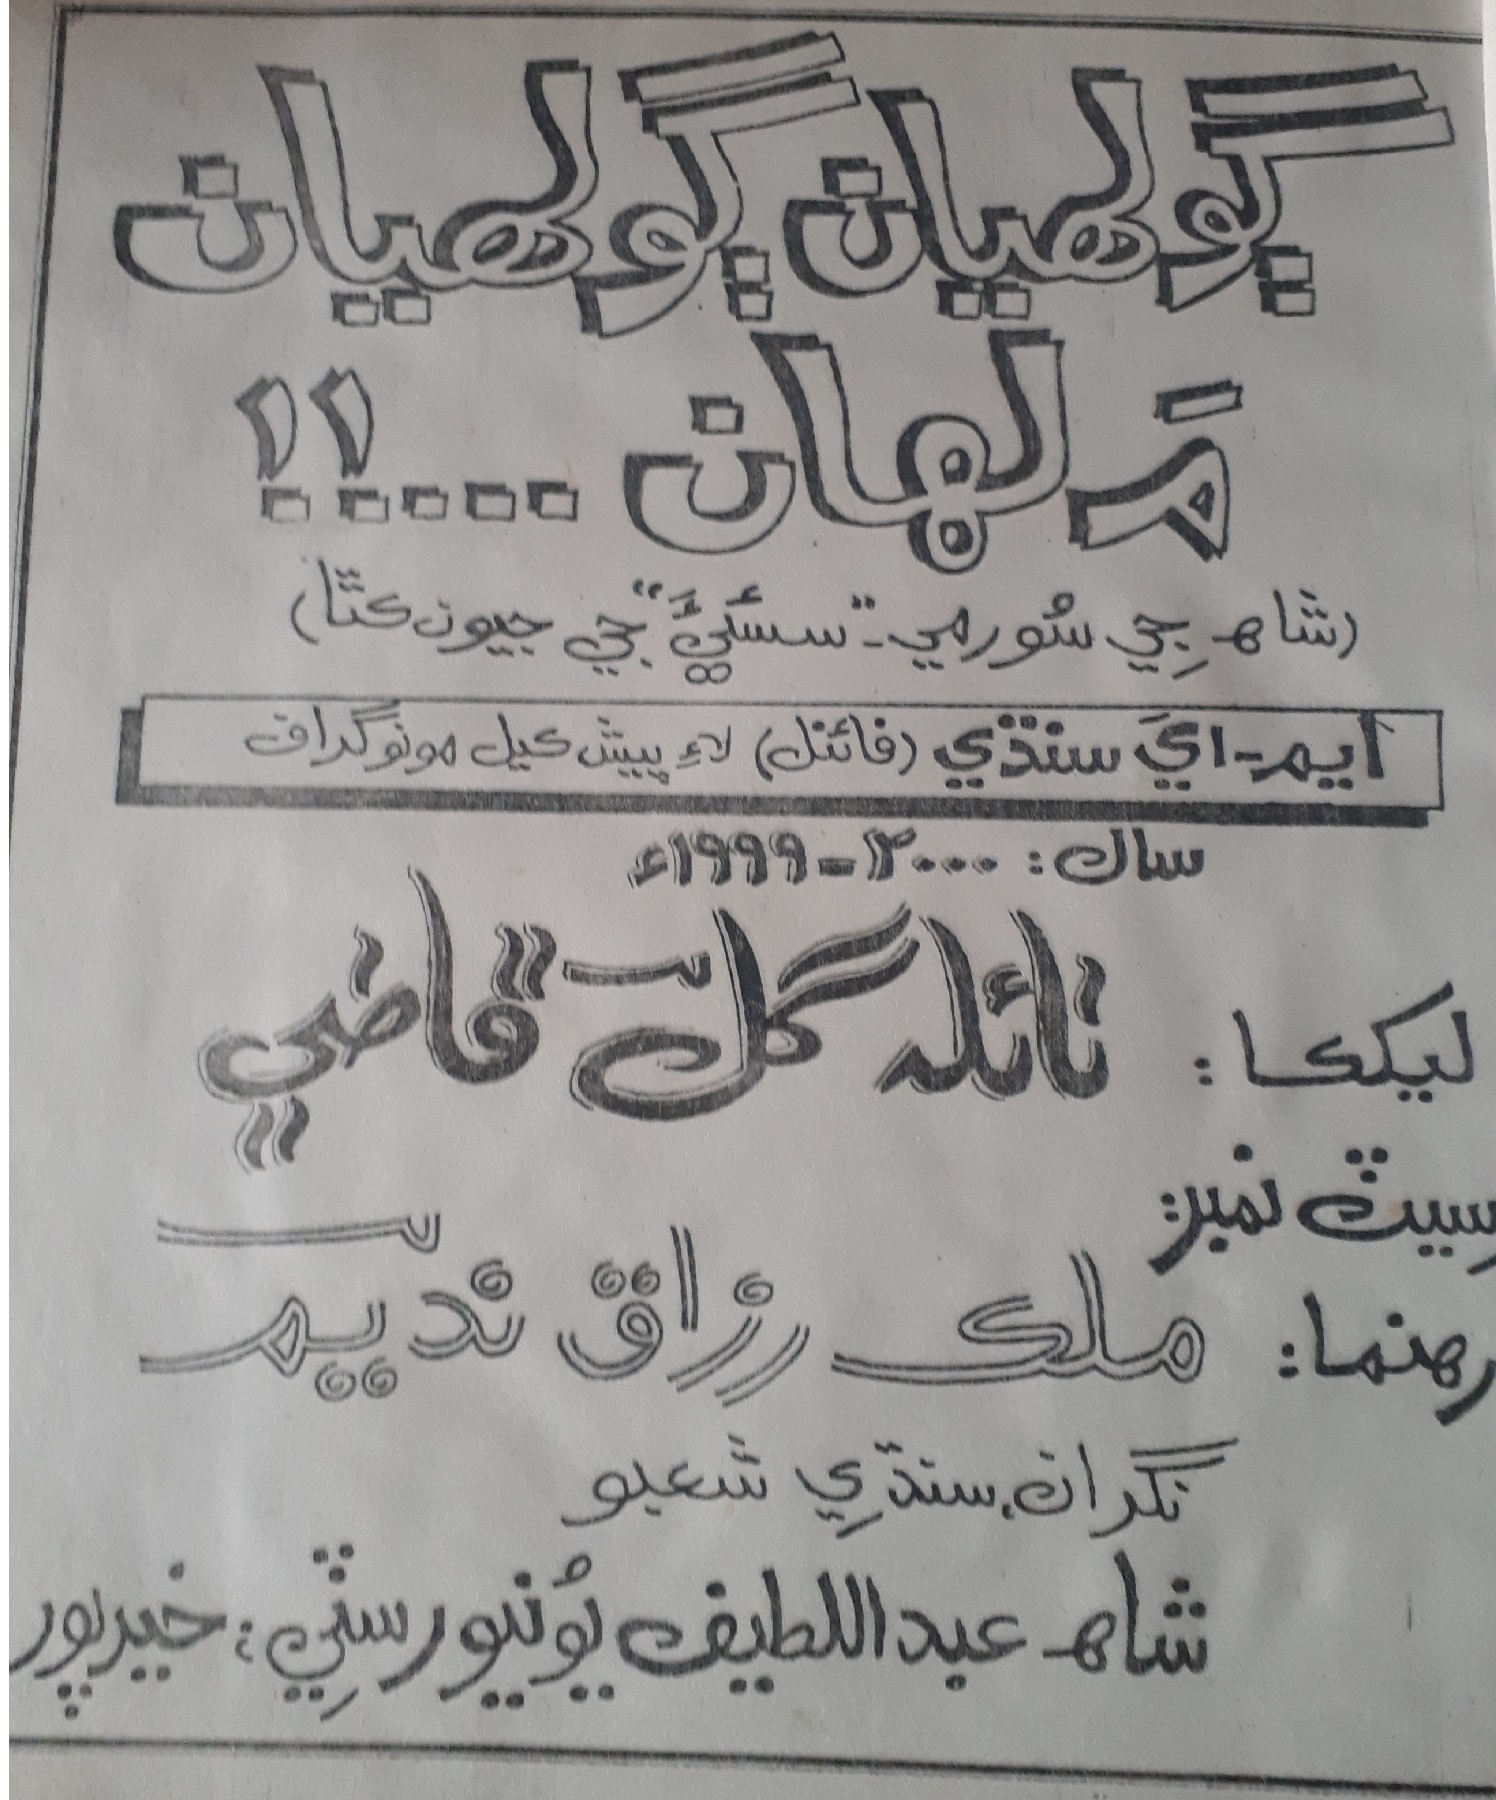 ڳولهيان ڳولهيان
مَ لهان ...!!
(شاهه جي سُورمي- "سسئيءَ" جي جيون ڪٿا)
ايم-اي سنڌي (فائنل) لاءِ پيش ڪيل مونوگراف
سال: ٢٠٠٠-١٩٩٩ء
ليککا: نائله گل قاضي
سيٽ نمبر:
رهنما: ملڪ رزاق نديم
نگران، سنڌي شعبو
شاهه عبداللطيف يُونيورسٽي، خيرپور